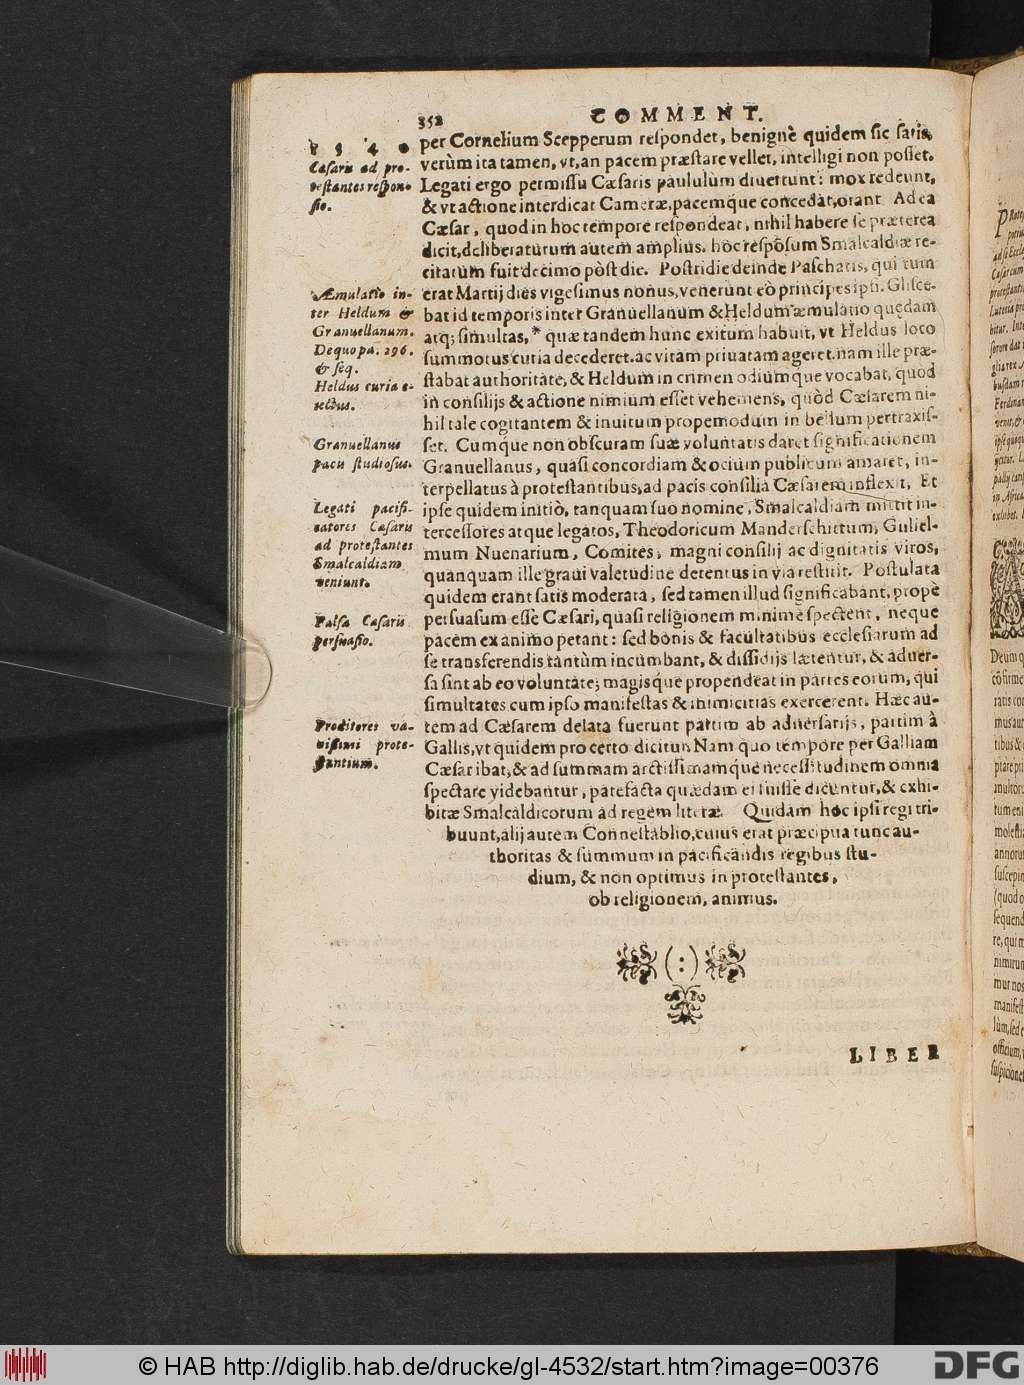 352
COMMENT.
1540
Cæsaris ad pro-
testantes respon-
sio.
per Cornelium Scepperum respondet, benignè quidem sic satis,
verùm ita tamen, vt, an pacem præstare vellet, intelligi non posset.
Legati ergo permissu Cæsaris paululùm diuertunt: mox redeunt,
& vt actione interdicat Cameræ, pacemque concedat, orant. Ad ea
Cæsar, quod in hoc tempore respondeat, nihil habere se præterea
dicit, deliberaturum autem amplius. hoc respõsum Smalcaldiæ re-
citatum fuit decimo pòst die. Postridie deinde Paschatis, qui tum
Æmulatio in-
ter Heldum &
Granuellanum.
De quo pa. 296.
& seq.
Heldus curia e-
iectus.
erat Martij dies vigesimus nonus, venerunt eò principes ipsi. Glisce-
bat id temporis inter Granuellanum & Heldum æmulatio quędam
atq; simultas,* quæ tandem hunc exitum habuit, vt Heldus loco
summotus curia decederet. ac vitam priuatam ageret. nam ille præ-
stabat authoritate, & Heldum in crimen odiumque vocabat, quod
in consilijs & actione nimium esset vehemens, quòd Cæsarem ni-
hil tale cogitantem & inuitum propemodum in bellum pertraxis-
Granuellanus
pacis studiosus.
set. Cumque non obscuram suæ voluntatis daret significationem
Granuellanus, quasi concordiam & ocium publicum amaret, in-
terpellatus à protestantibus, ad pacis consilia Cæsarem inflexit. Et
Legati pacifi-
catores Cæsaris
ad protestantes
Smalcaldiam
veniunt.
ipse quidem initiò, tanquam suo nomine, Smalcaldiam mittit in-
tercessores atque legatos, Theodoricum Manderschittum, Guliel-
mum Nuenarium, Comites, magni consilij ac dignitatis viros,
quanquam ille graui valetudine detentus in via restitit. Postulata
quidem erant satis moderata, sed tamen illud significabant, propè
Falsa Cæsaris
persuasio.
persuasum esse Cæsari, quasi religionem minimè spectent, neque
pacem ex animo petant: sed bonis & facultatibus ecclesiarum ad
se transferendis tantùm incumbant, & dissidijs lætentur, & aduer-
sa sint ab eo voluntate; magisque propendeat in partes eorum, qui
simultates cum ipso manifestas & inimicitias exercerent. Hæc au-
Proditores va-
nissimi prote-
stantium.
tem ad Cæsarem delata fuerunt partim ab aduersarijs, partim à
Gallis, vt quidem pro certo dicitur. Nam quo tempore per Galliam
Cæsar ibat, & ad summam arctissimamque necessitudinem omnia
spectare videbantur, patefacta quædam ei fuisse dicuntur, & exhi-
bitæ Smalcaldicorum ad regem literæ. Quidam hoc ipsi regi tri-
buunt, alij autem Connestablio, cuius erat præcipua tunc au-
thoritas & summum in pacificandis regibus stu-
dium, & non optimus in protestantes,
ob religionem, animus.
(:)
LIBER
© HAB http://diglib.hab.de/drucke/gl-4532/start.htm?image=00376
DFG